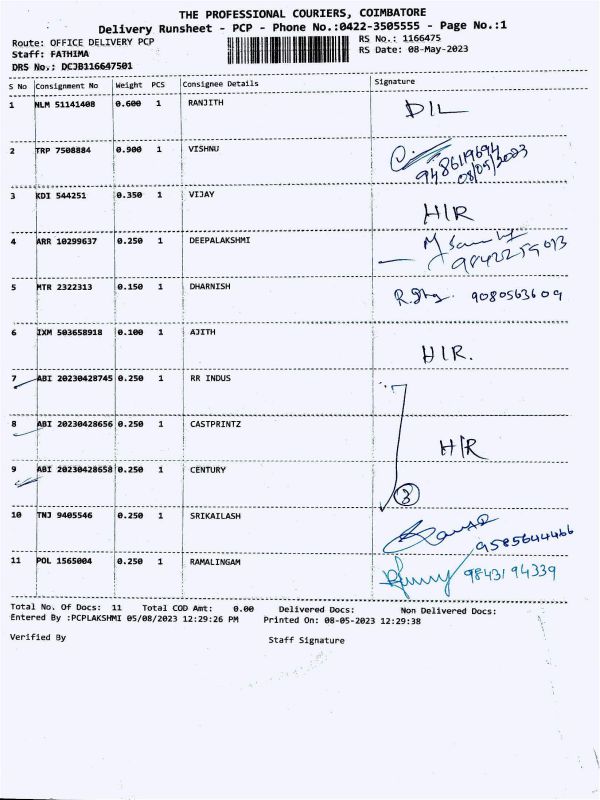 THE PROFESSIONAL COURIERS, COIMBATORE
Delivery Runsheet - PCP - Phone No.:0422-3505555 - Page No.:1
Route: OFFICE DELIVERY PCP
RS No.: 1166475
Staff: FATHIMA
RS Date: 08-May-2023
DRS No.; DCJB116647501
S No Consignment No Weight PCS Consignee Details Signature
1 NLM 51141408 0.600 1 RANJITH D/L
2 TRP 7508884 0.900 1 VISHNU
9486119694
08/05/2023
3 KDI 544251 0.350 1 VIJAY H/R
4 ARR 10299637 0.250 1 DEEPALAKSHMI
9842259013
5 MTR 2322313 0.150 1 DHARNISH 9080563609
6 IXM 503658918 0.100 1 AJITH H/R.
7 ABI 20230428745 0.250 1 RR INDUS
8 ABI 20230428656 0.250 1 CASTPRINTZ H/R
9 ABI 20230428658 0.250 1 CENTURY
3
10 TNJ 9405546 0.250 1 SRIKAILASH
9585644466
11 POL 1565004 0.250 1 RAMALINGAM 9843194339
Total No. Of Docs: 11 Total COD Amt: 0.00 Delivered Docs: Non Delivered Docs:
Entered By :PCPLAKSHMI 05/08/2023 12:29:26 PM Printed On: 08-05-2023 12:29:38
Verified By Staff Signature